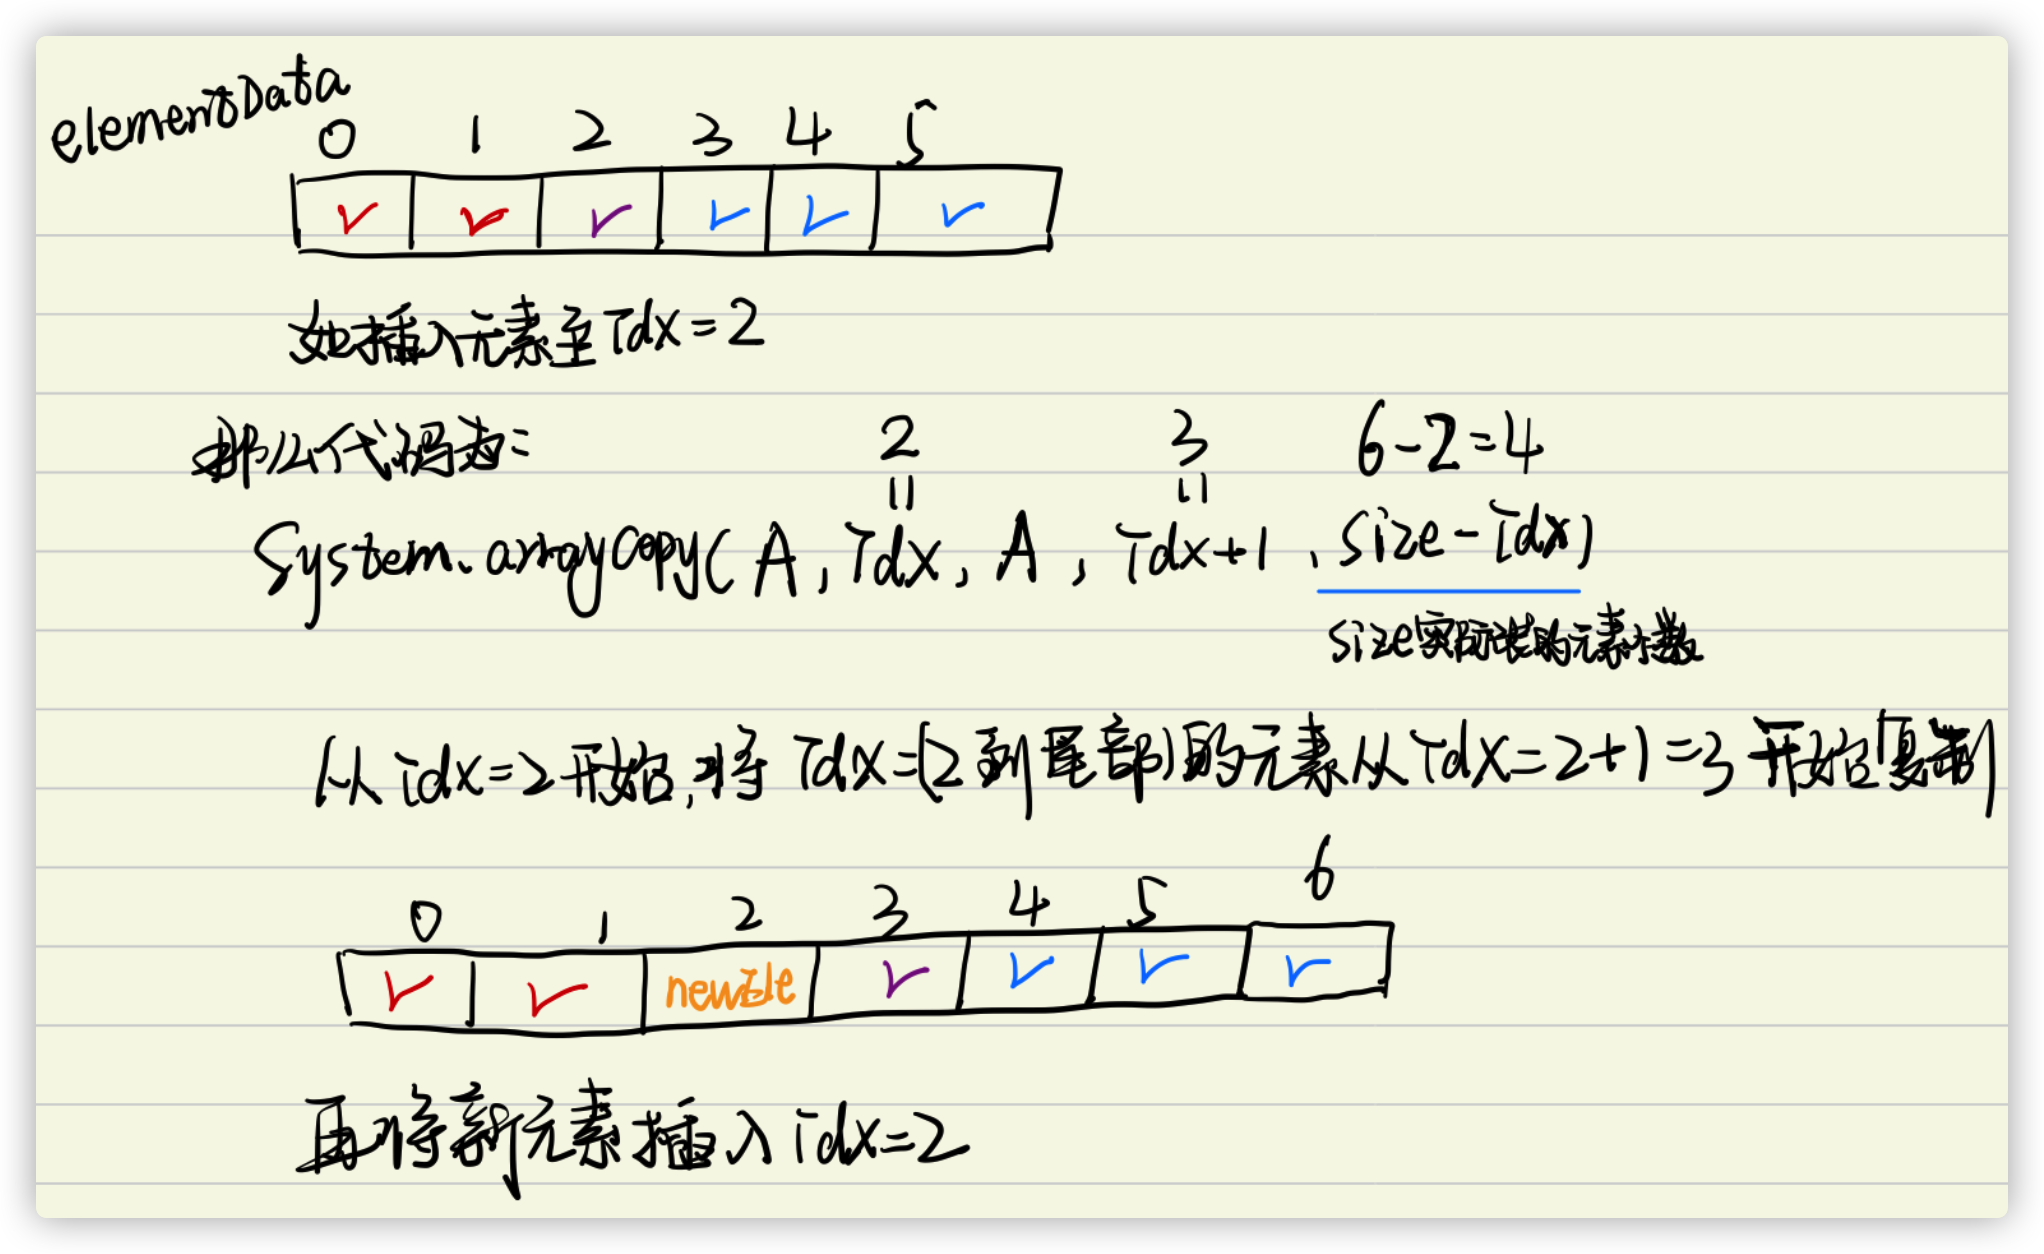 elementData
0 1 2 3 4 5
如插入元素至idx=2
那么代码为:
2 3 6-2=4
System.arraycopy(A, idx, A, idx+1, size-idx)
size实际装的元素个数
从idx=2开始,将idx=(2到尾部)的元素从idx=2+1=3开始复制
0 1 2 3 4 5 6
newEle
再将新元素插入idx=2